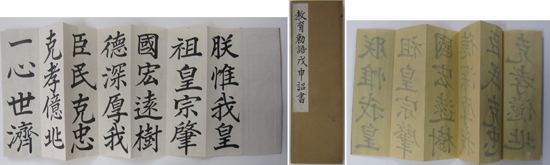 朕惟我皇
祖皇宗肇
國宏遠樹
德深厚我
臣民克忠
克孝億兆
一心世濟
教育勅語戊申詔書
朕惟我皇
祖皇宗肇
國宏遠樹
德深厚我
臣民克忠
克孝億兆